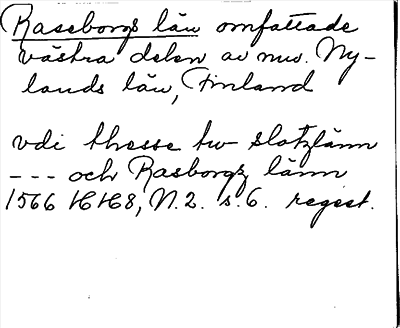 Raseborgs län omfattade
västra delen av nuv. Ny-
lands län, Finland
vdi thesse tw slotzlänn
--- och Rasborgz länn
1566 HH8, N.2. s.6. regest.